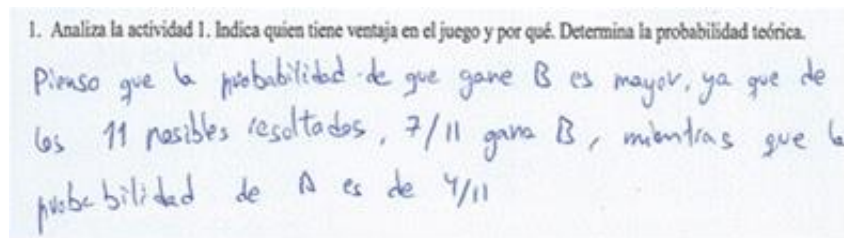 1. Analiza la actividad 1. Indica quien tiene ventaja en el juego y por qué. Determina la probabilidad teórica.
Pienso que la probabilidad de que gane B es mayor, ya que de
los 11 posibles resultados, 7/11 gana B, mientras que la
probabilidad de A es de 4/11